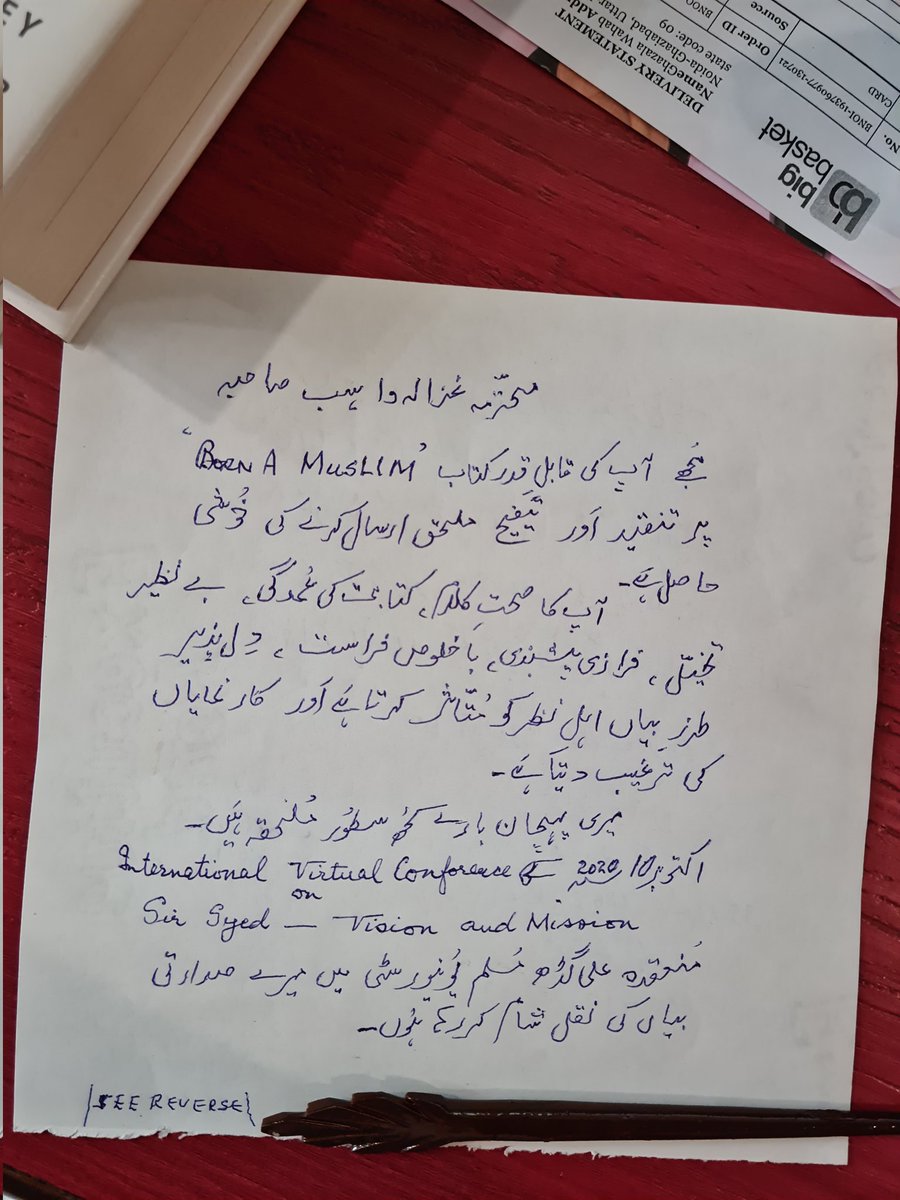 EY
DELIVERY STATEMENT
NameGhazala Wahab Add
Noida-Ghaziabad, Uttar
state code: 09
Order ID
BNO1-193760977-130721
Source
CARD
No.
BNO0
big
basket
bb
محترمہ غزالہ واہب صاحبہ
مجھے آپ کی قابلِ قدر کتاب "BORN A MUSLIM"
پر تنقید اَور تَنقیح ملحق ارسال کرنے کی خُوشی
حاصل ہَے۔
آپ کا صحتِ کلام، کتابت کی عُمدگی، بے نظیر
تخیّل، فرازی پیشبندی، با خلوص فراست، دِل پذیر
طرزِ بیاں اہلِ نظر کو مُتاثر کرتا ہَے اَور کارِ نمایاں
کی ترغیب دیتا ہَے۔
میری پہچان بارے کُچھ سطُور مُلحقہ ہَیں۔
اکتوبر 10/ 2020 کے International Virtual Conference
on
Sir Syed — Vision and Mission
مُنعقدہ علی گڑھ مُسلم یُونیورسٹی میں میرے صدارتی
بیاں کی نقل شامل کر رہا ہُوں۔
SEE REVERSE